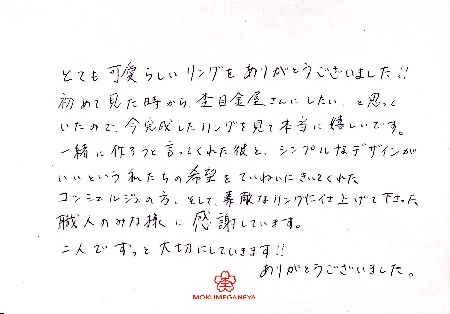 とても可愛らしいリングをありがとうございました!!
初めて見た時から、杢目金屋さんにしたい、と思って
いたので、今完成したリングを見て本当に嬉しいです。
一緒に作ろうと言ってくれた彼と、シンプルなデザインが
いいという私たちの希望をていねいにきいてくれた
コンシェルジュの方、そして、素敵なリングに仕上げて下さった
職人のみな様に感謝しています。
二人でずっと大切にしていきます!!
ありがとうございました。
MOKUMEGANEYA